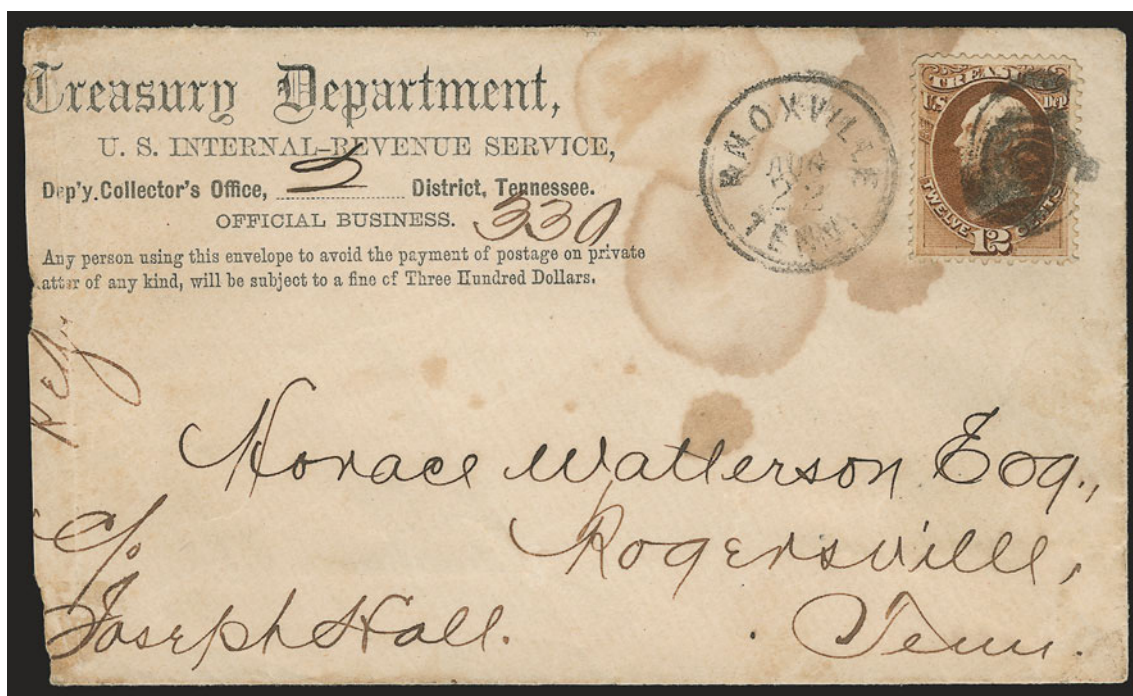 Treasury Department,
U. S. INTERNAL-REVENUE SERVICE,
Dep'y. Collector's Office, 2 District, Tennessee.
OFFICIAL BUSINESS. 330
Any person using this envelope to avoid the payment of postage on private
atter of any kind, will be subject to a fine of Three Hundred Dollars.
KNOXVILLE
AUG
TENN.
TREASY
U.S. DEP
TWELVE 12 CENTS
Horace Watterson Esq.,
Rogersville,
Tenn.
c/o
Joseph Hall.